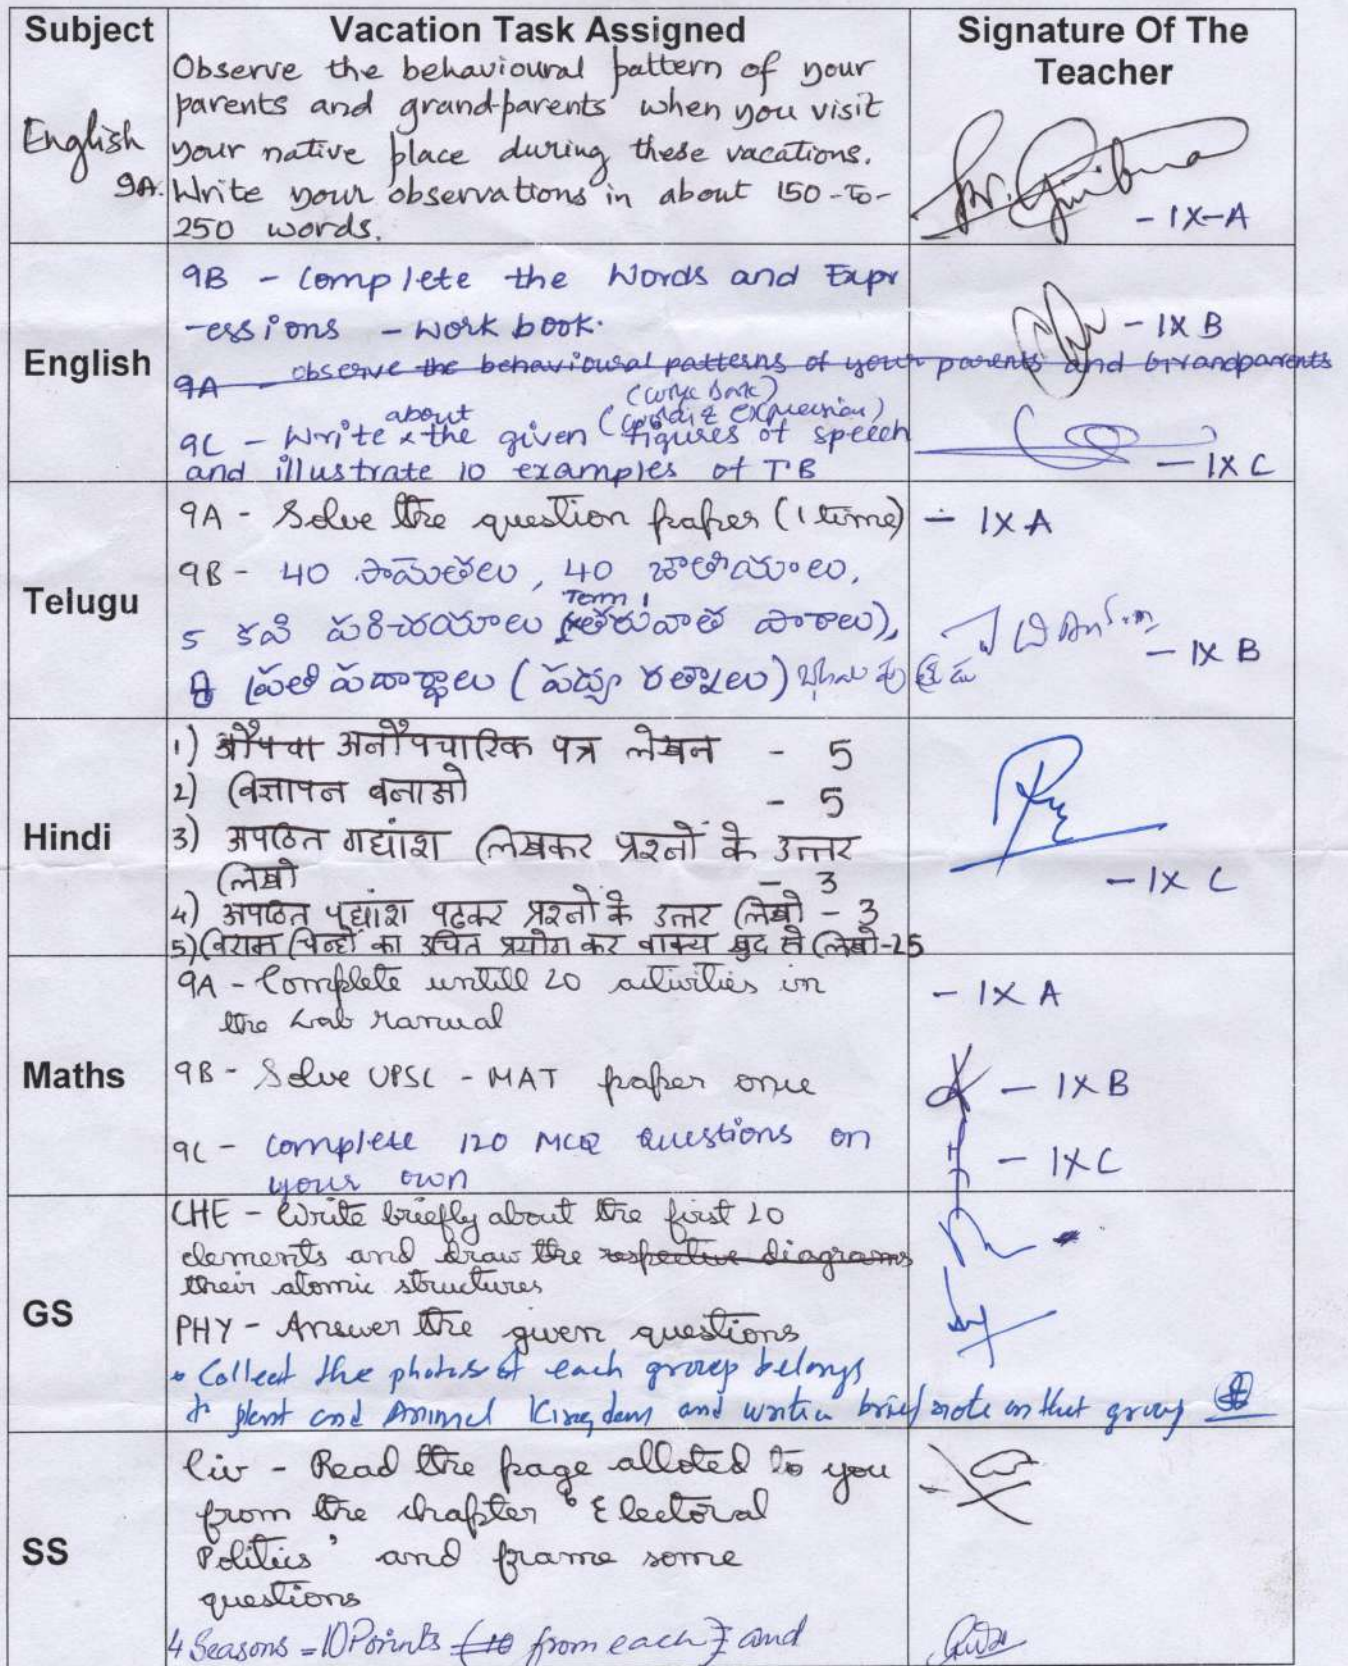 Subject Vacation Task Assigned Signature Of The
Teacher
English
9A.
Observe the behavioural pattern of your
parents and grand-parents when you visit
your native place during these vacations.
Write your observations in about 150-to-
250 words.
- IX-A
English
9B - Complete the Words and Expr
-essions - work book.
- IX B
9A - observe the behavioural patterns of your parents and Grandparents
(work book)
about
9C - Write the given figures of speech
and illustrate 10 examples of TB
- IX C
Telugu
9A - Solve the question paper (1 time) - IX A
9B - 40 సామెతలు, 40 జాతీయాలు,
Term 1
5 కవి పరిచయాలు (తరువాత పాఠాలు),
8 ప్రతి పదార్థాలు (పద్య రత్నాలు)
- IX B
Hindi
1) औपचा अनौपचारिक पत्र लेखन - 5
2) विज्ञापन बनाओ - 5
3) अपठित गद्यांश लिखकर प्रश्नों के उत्तर
लिखो - 3
4) अपठित पद्यांश पढकर प्रश्नों के उत्तर लिखो - 3
5) विराम चिन्हों का उचित प्रयोग कर वाक्य खुद से लिखो-25
- IX C
Maths
9A - Complete untill 20 activities in
the Lab Manual
- IX A
9B - Solve UPSC - MAT paper once
- IX B
9C - complete 120 MCQ questions on
your own
- IX C
GS
CHE - Write briefly about the first 20
elements and draw the respective diagrams
their atomic structures
PHY - Answer the given questions
• Collect the photos of each group belongs
to plant and Animal Kingdom and write a brief note on that group
SS
Civ - Read the page alloted to you
from the chapter 'Electoral
Politics' and frame some
questions
4 Seasons = 10 Points (10 from each) and